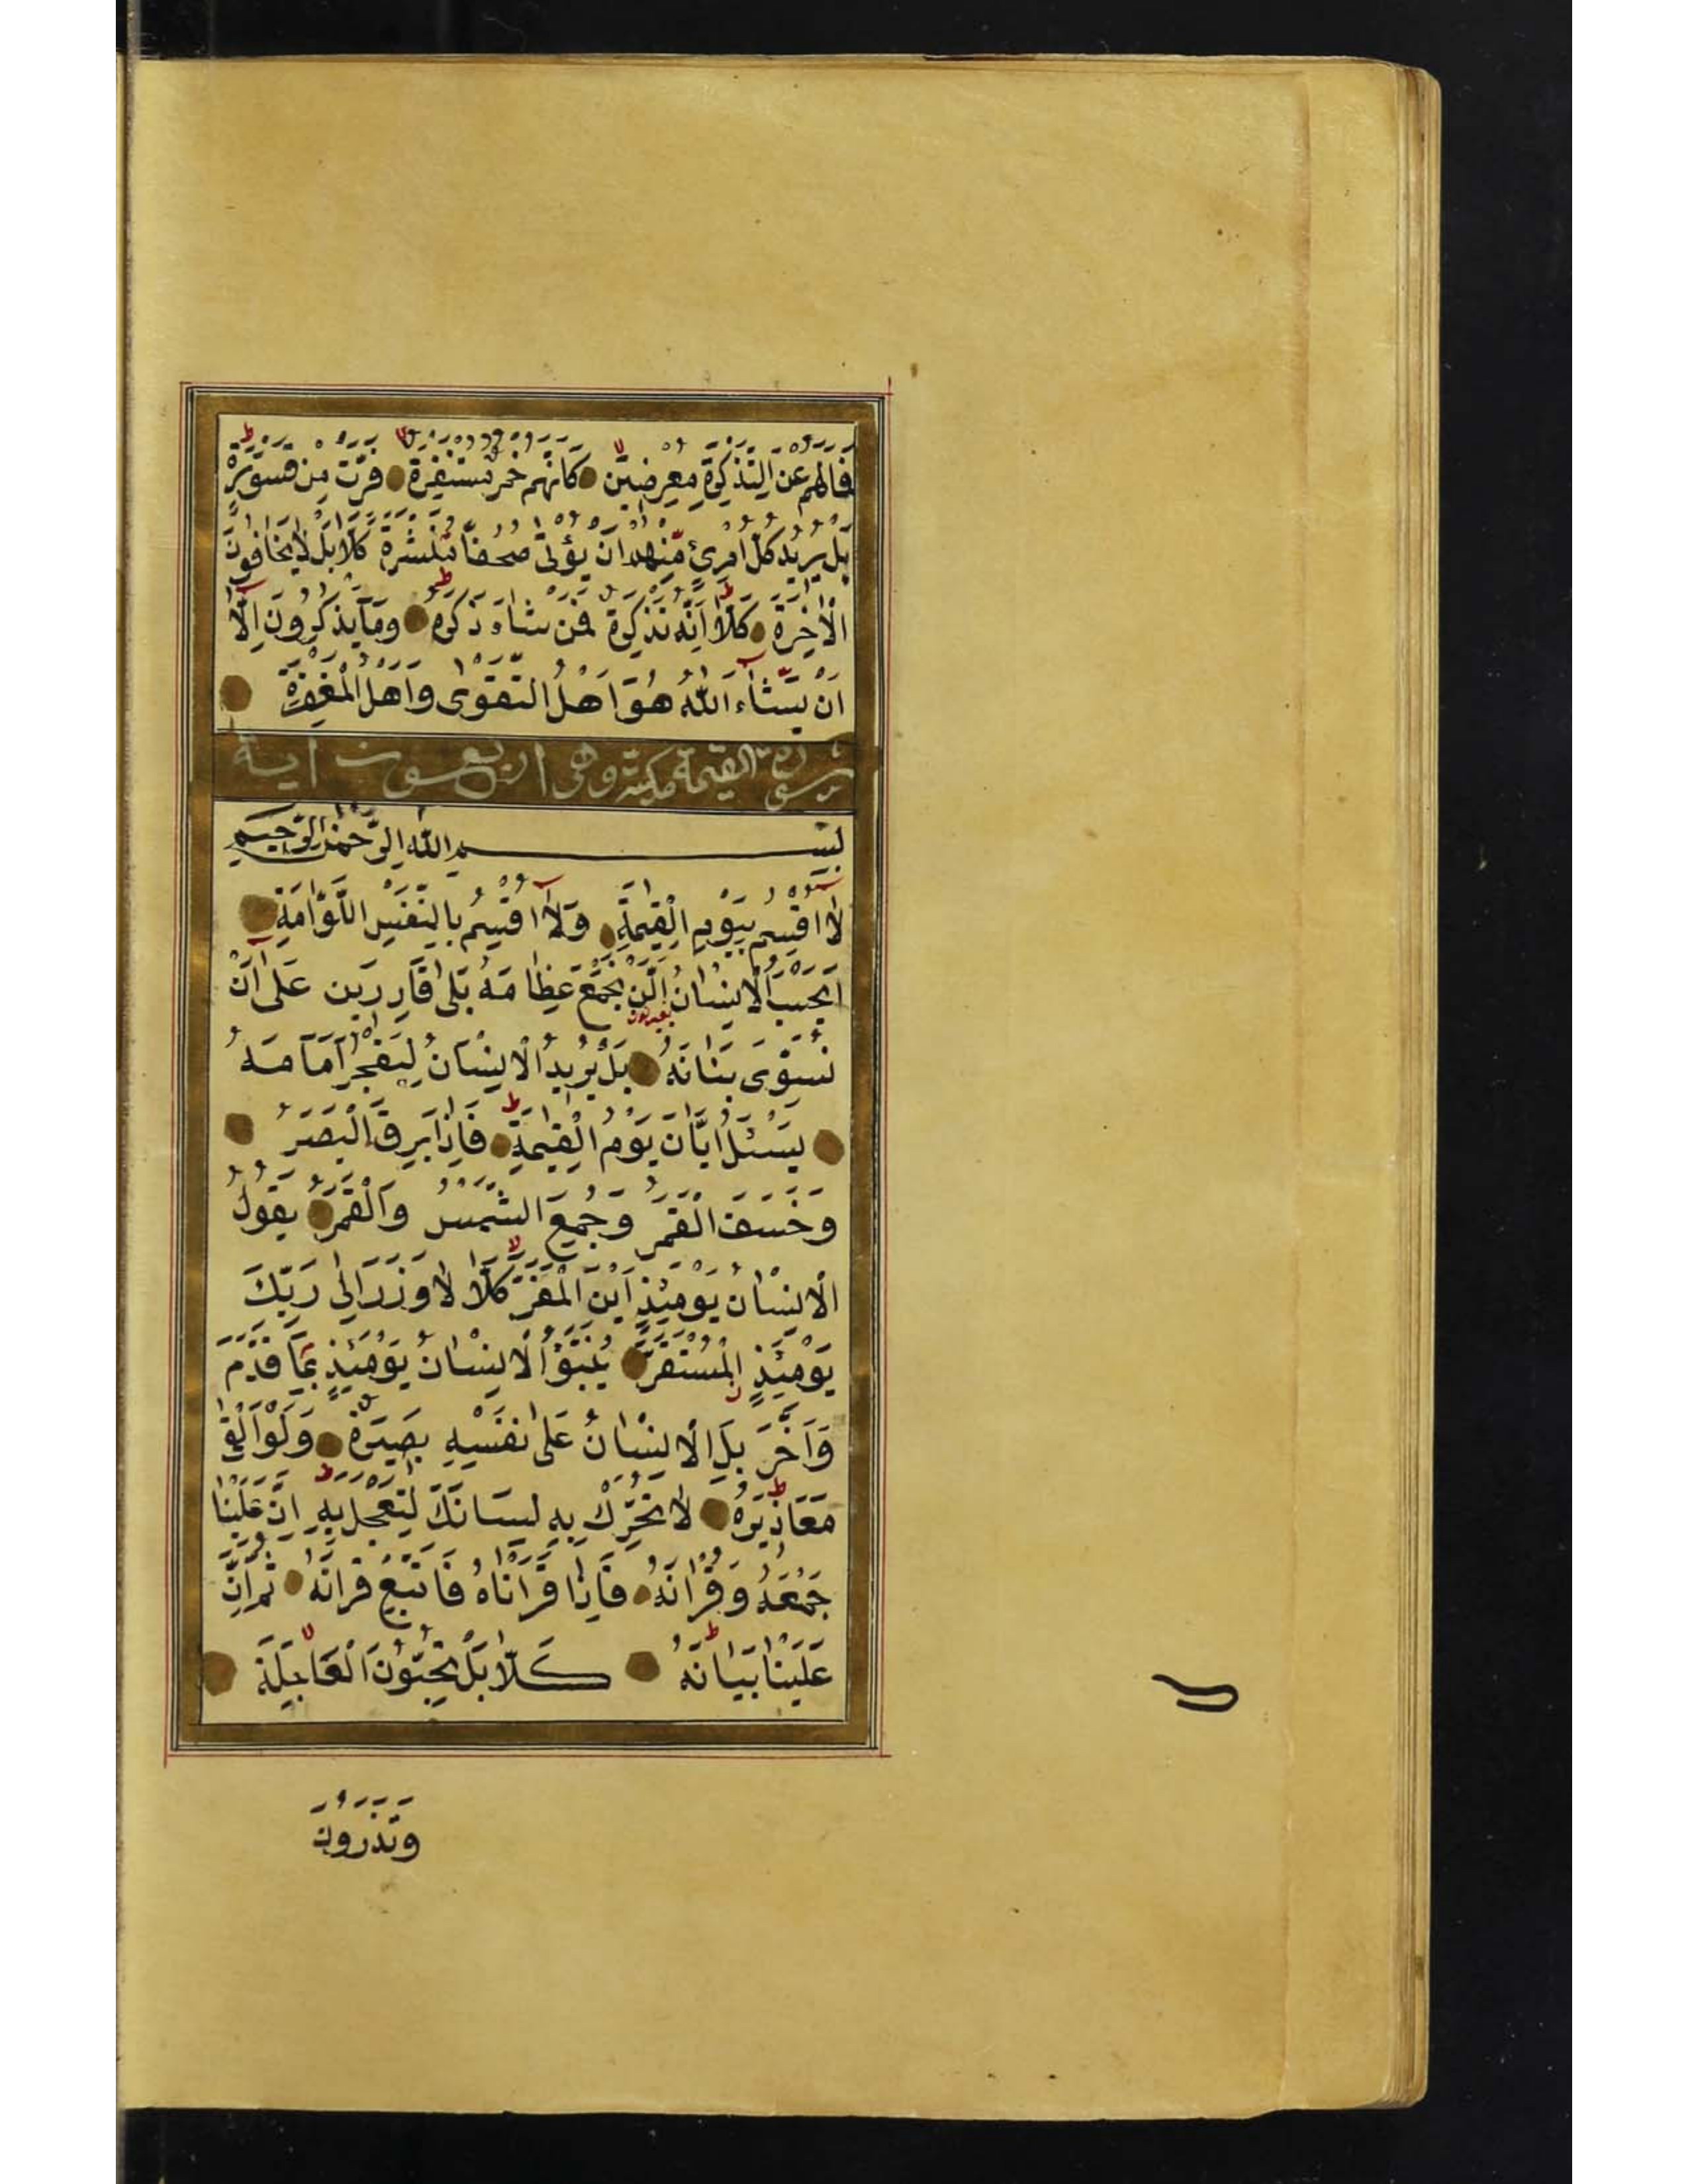 فَمَالَهُمْ عَنِ التَّذْكِرَةِ مُعْرِضِيْنَ كَاَنَّهُمْ حُمُرٌ مُسْتَنْفِرَةٌ فَرَّتْ مِنْ قَسْوَرَةٍ
بَلْ يُرِيْدُ كُلُّ امْرِئٍ مِّنْهُمْ اَنْ يُؤْتٰى صُحُفًا مُّنَشَّرَةً كَلَّا بَلْ لَا يَخَافُوْنَ
الْاٰخِرَةَ كَلَّا اِنَّهُ تَذْكِرَةٌ فَمَنْ شَاءَ ذَكَرَهُ وَمَا يَذْكُرُوْنَ اِلَّا
اَنْ يَّشَاءَ اللّٰهُ هُوَ اَهْلُ التَّقْوٰى وَاَهْلُ الْمَغْفِرَةِ
سورة القيمة مكية وهى اربعون اية
بِسْمِ اللّٰهِ الرَّحْمٰنِ الرَّحِيْمِ
لَا اُقْسِمُ بِيَوْمِ الْقِيٰمَةِ وَلَا اُقْسِمُ بِالنَّفْسِ اللَّوَّامَةِ
اَيَحْسَبُ الْاِنْسَانُ اَلَّنْ نَجْمَعَ عِظَامَهُ بَلٰى قَادِرِيْنَ عَلٰى اَنْ
نُسَوِّىَ بَنَانَهُ بَلْ يُرِيْدُ الْاِنْسَانُ لِيَفْجُرَ اَمَامَهُ
يَسْئَلُ اَيَّانَ يَوْمُ الْقِيٰمَةِ فَاِذَا بَرِقَ الْبَصَرُ
وَخَسَفَ الْقَمَرُ وَجُمِعَ الشَّمْسُ وَالْقَمَرُ يَقُوْلُ
الْاِنْسَانُ يَوْمَئِذٍ اَيْنَ الْمَفَرُّ كَلَّا لَا وَزَرَ اِلٰى رَبِّكَ
يَوْمَئِذٍ الْمُسْتَقَرُّ يُنَبَّؤُا الْاِنْسَانُ يَوْمَئِذٍ بِمَا قَدَّمَ
وَاَخَّرَ بَلِ الْاِنْسَانُ عَلٰى نَفْسِهِ بَصِيْرَةٌ وَلَوْ اَلْقٰى
مَعَاذِيْرَهُ لَا تُحَرِّكْ بِهِ لِسَانَكَ لِتَعْجَلَ بِهِ اِنَّ عَلَيْنَا
جَمْعَهُ وَقُرْاٰنَهُ فَاِذَا قَرَاْنَاهُ فَاتَّبِعْ قُرْاٰنَهُ ثُمَّ اِنَّ
عَلَيْنَا بَيَانَهُ كَلَّا بَلْ تُحِبُّوْنَ الْعَاجِلَةَ
وَتَذَرُوْنَ